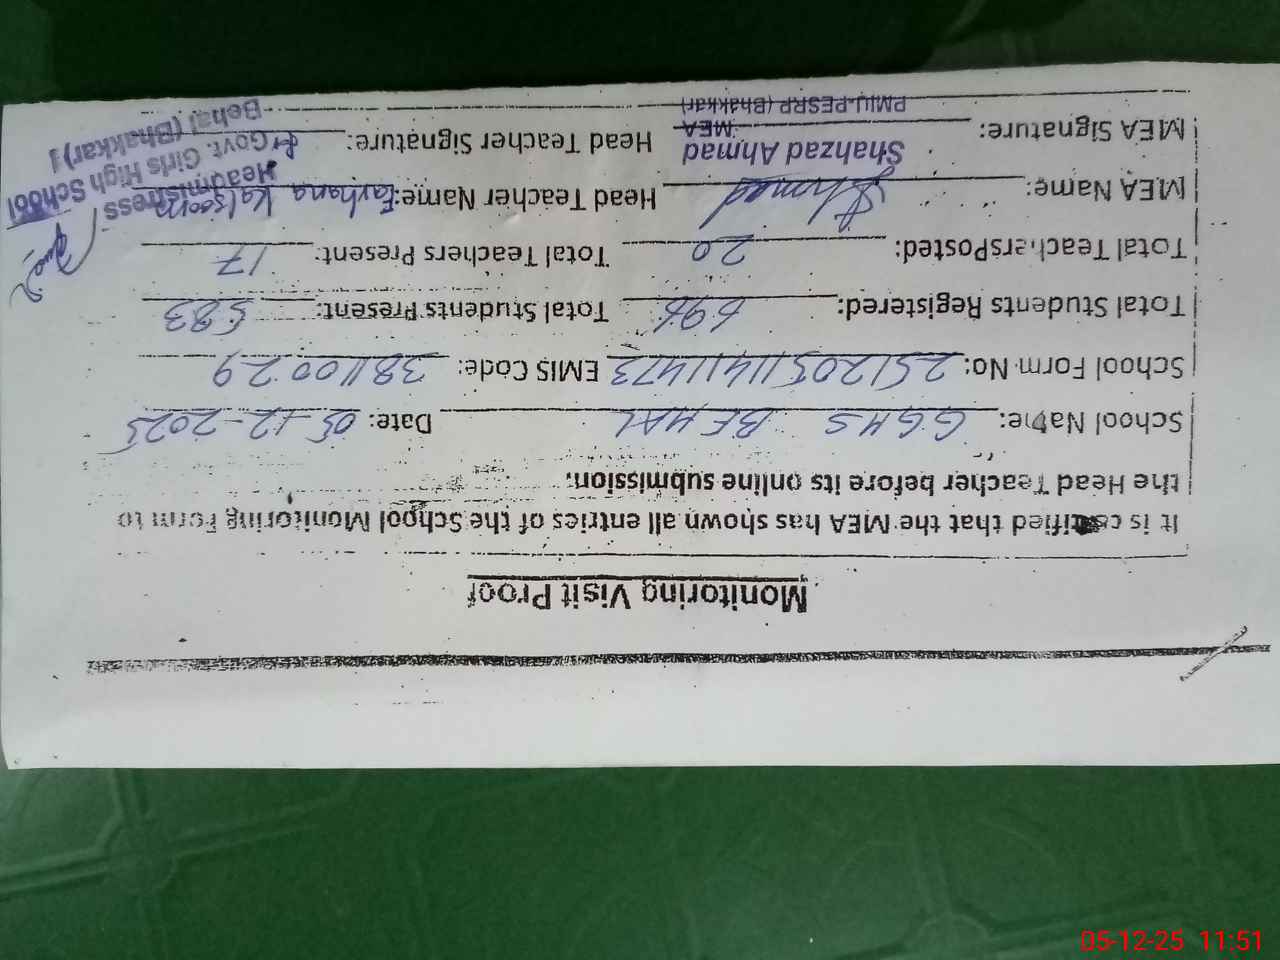 Monitoring Visit Proof
It is certified that the MEA has shown all entries of the School Monitoring Form to
the Head Teacher before its online submission.
School Name: GGHS BEHAL Date: 05-12-2025
School Form No: 251205114111473 EMIS Code: 38110029
Total Students Registered: 696 Total Students Present: 583
Total Teachers Posted: 20 Total Teachers Present: 17
MEA Name: Ahmad Head Teacher Name: Farhana Kalsoom
Shahzad Ahmad
MEA Signature: MEA Head Teacher Signature:
PMIU-PESRP (Bhakkar)
Headmistress
Govt. Girls High School
Behal (Bhakkar)
05-12-25 11:51